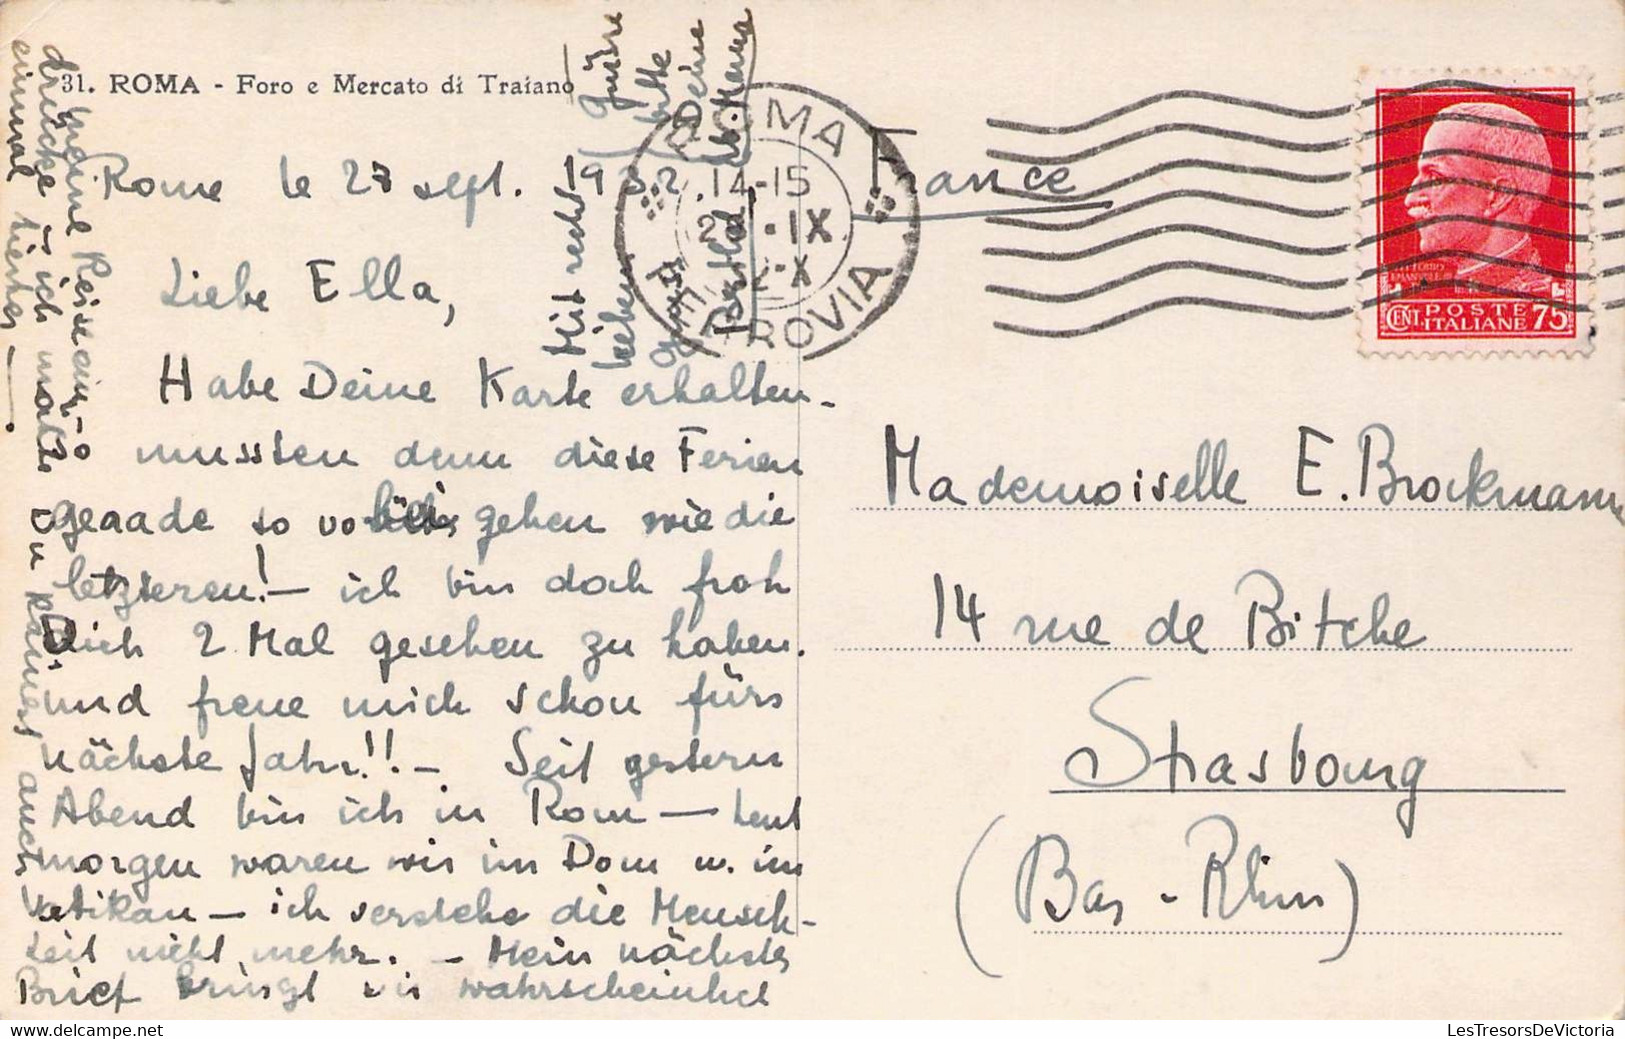 31. ROMA - Foro e Mercato di Traiano
Rome le 27 sept. 1932.
Liebe Ella,
Habe Deine Karte erhalten -
mussten denn diese Ferien
geaade so vorbei gehen wie die
letzteren! - ich bin doch froh
Dich 2 Mal gesehen zu haben.
und freue mich schon fürs
nächste Jahr!! - Seit gestern
Abend bin ich in Rom - heut
morgen waren wir im Dom u. im
Vatikan - ich verstehe die Mensch-
heit nicht mehr. - Mein nächster
Brief bringt dir wahrscheinlich
meine Reiseein-
drücke - ich wollte Du kämest auch
einmal hierher -
Mit recht
lieben
Grüße
bitte
Deine
Berthel
France
ROMA
14-15
IX
X
FERROVIA
VITTORIO
EMANUELE
CENT. POSTE
ITALIANE 75
Mademoiselle E. Brockmann
14 rue de Bitche
Strasbourg
(Bas-Rhin)
LesTresorsDeVictoria